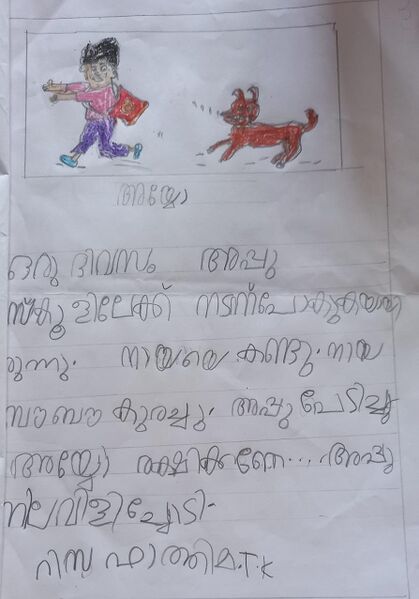 അയ്യോ
ഒരു ദിവസം അപ്പു
സ്കൂളിലേക്ക് നടന്പോകുകയായി
രുന്നു. നായയെ കണ്ടു. നായ
ബൗബൗ കുരച്ചു. അപ്പു പേടിച്ചു
അയ്യോ രക്ഷിക്കണേ... അപ്പു
നിലവിളിച്ചോടി.
റിസ ഫാത്തിമ.T.K